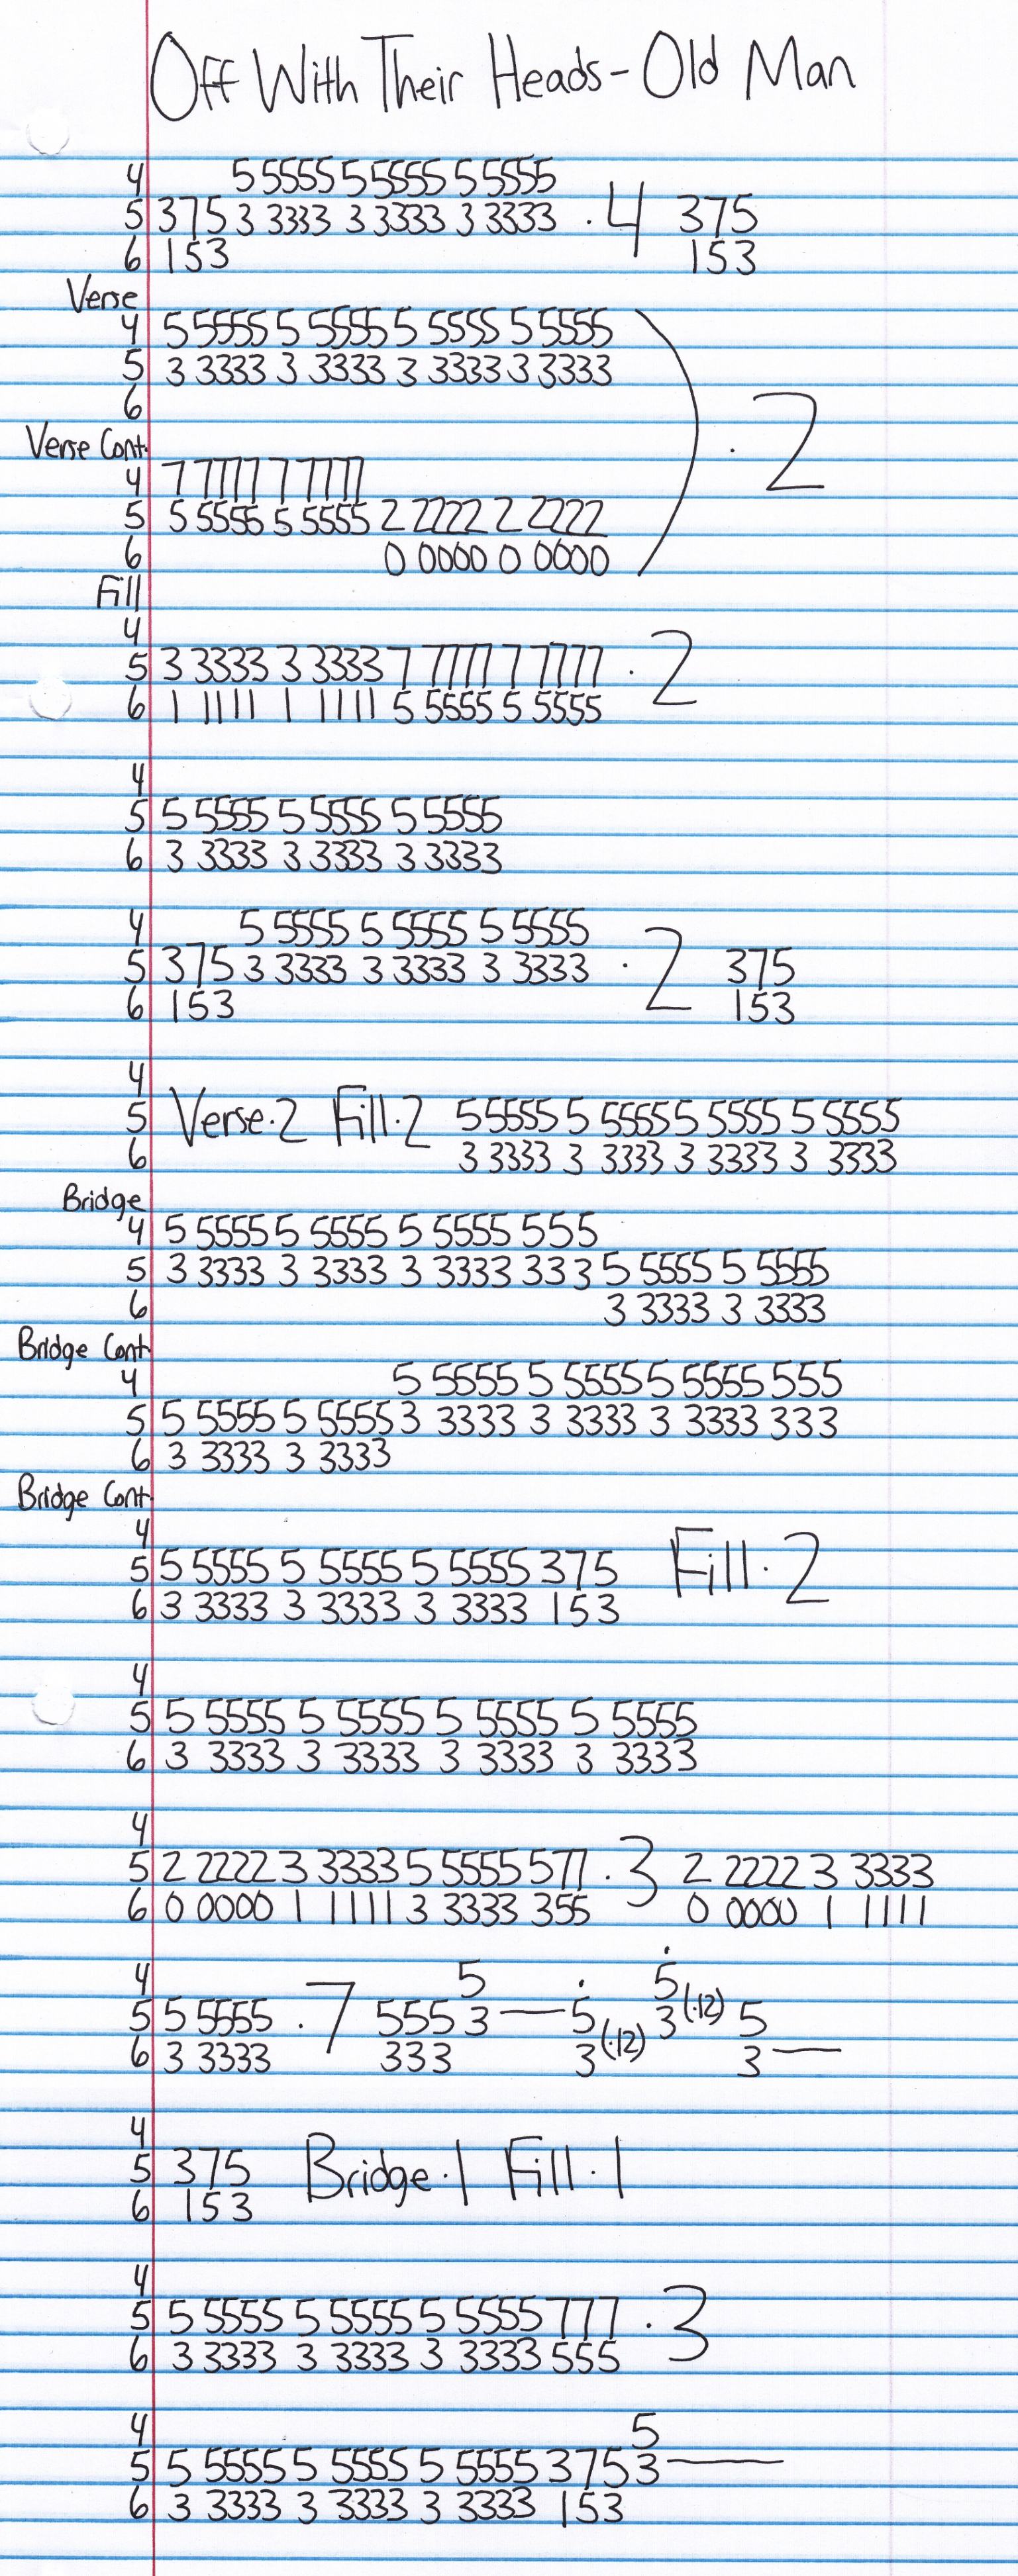 Off With Their Heads - Old Man
4 5 5555 5 5555 5 5555
5 375 3 3333 3 3333 3 3333 · 4 375
6 153 153
Verse
4 5 5555 5 5555 5 5555 5 5555
5 3 3333 3 3333 3 3333 3 3333
6
· 2
Verse Cont.
4 7 7777 7 7777
5 5 5555 5 5555 2 2222 2 2222
6 0 0000 0 0000
Fill
4
5 3 3333 3 3333 7 7777 7 7777 · 2
6 1 1111 1 1111 5 5555 5 5555
4
5 5 5555 5 5555 5 5555
6 3 3333 3 3333 3 3333
4 5 5555 5 5555 5 5555
5 375 3 3333 3 3333 3 3333 · 2 375
6 153 153
4
5 Verse·2 Fill·2 5 5555 5 5555 5 5555 5 5555
6 3 3333 3 3333 3 3333 3 3333
Bridge
4 5 5555 5 5555 5 5555 555
5 3 3333 3 3333 3 3333 333 5 5555 5 5555
6 3 3333 3 3333
Bridge Cont.
4 5 5555 5 5555 5 5555 555
5 5 5555 5 5555 3 3333 3 3333 3 3333 333
6 3 3333 3 3333
Bridge Cont.
4
5 5 5555 5 5555 5 5555 375 Fill·2
6 3 3333 3 3333 3 3333 153
4
5 5 5555 5 5555 5 5555 5 5555
6 3 3333 3 3333 3 3333 3 3333
4
5 2 2222 3 3333 5 5555 577 · 3 2 2222 3 3333
6 0 0000 1 1111 3 3333 355 0 0000 1 1111
4 5 5
5 5 5555 · 7 555 3 — 5 3 (·12) 5
6 3 3333 333 3 (·12) 3 —
4
5 375 Bridge·1 Fill·1
6 153
4
5 5 5555 5 5555 5 5555 777 · 3
6 3 3333 3 3333 3 3333 555
4 5
5 5 5555 5 5555 5 5555 375 3 —
6 3 3333 3 3333 3 3333 153